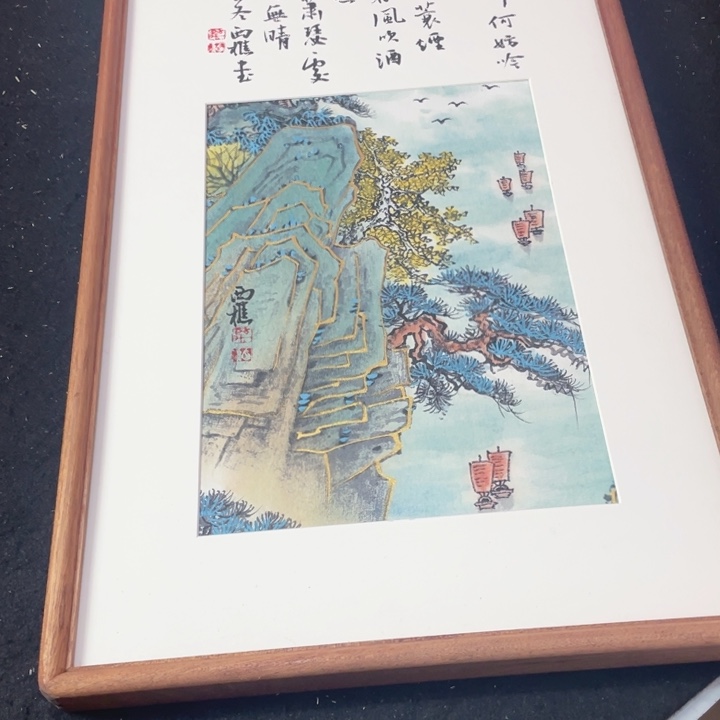 何妨吟
蓑煙
風吹酒
蕭瑟處
無晴
西樵書
西樵